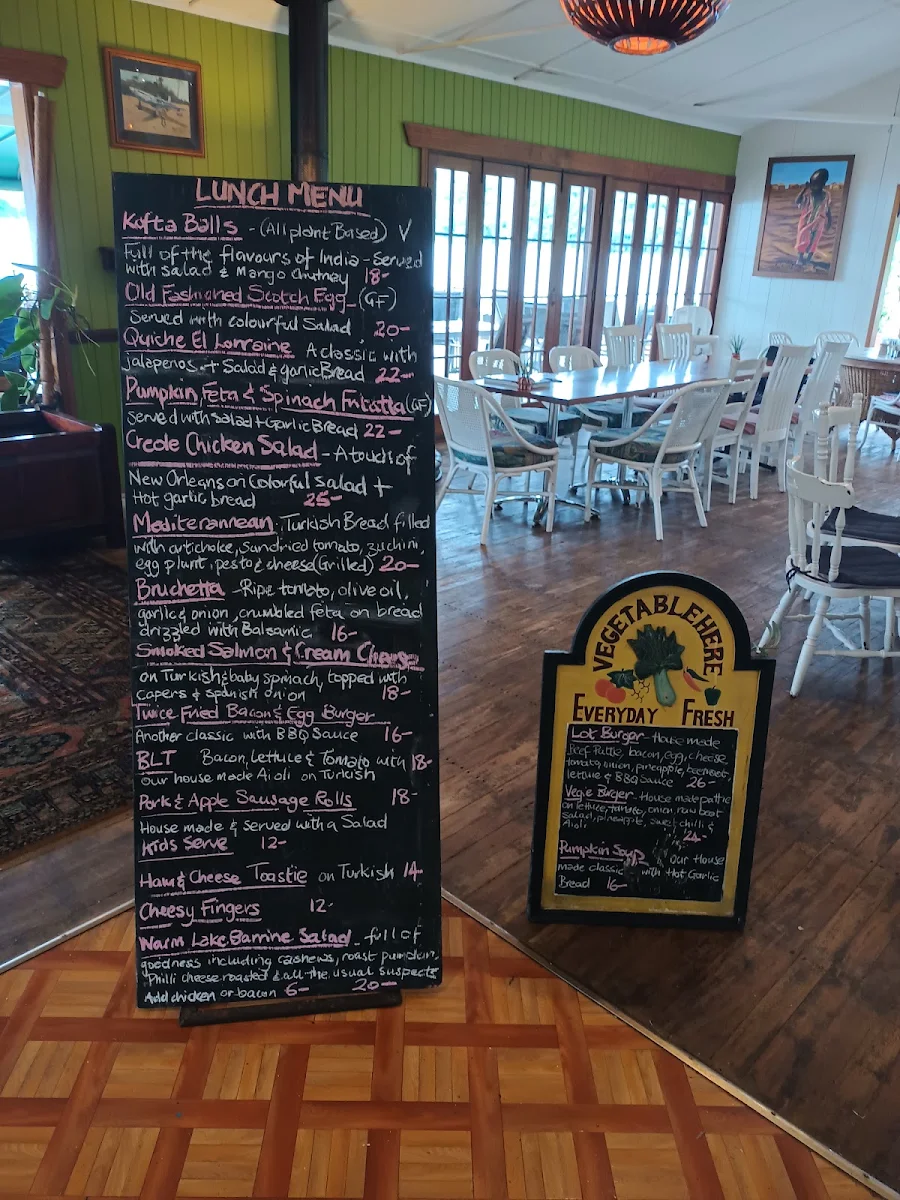 LUNCH MENU
Kofta Balls - (All plant Based) V
Full of the flavours of India - Served
with salad & Mango chutney 18-
Old Fashioned Scotch Egg - (GF)
Served with colourful Salad 20-
Quiche El Lorraine A classic with
jalapenos + Salad & garlic Bread 22-
Pumpkin, Feta & Spinach Fritatta (GF)
served with salad + Garlic Bread 22-
Creole Chicken Salad - A touch of
New Orleans on colorful salad +
Hot garlic bread 25-
Mediterannean - Turkish Bread filled
with artichoke, sundried tomato, zuchini,
egg plant, pesto & cheese (Grilled) 20-
Bruchetta - Ripe tomato, olive oil,
garlic & onion, crumbled feta on bread
drizzled with Balsamic 16-
Smoked Salmon & Cream Cheese
on Turkish & baby spinach, topped with
capers & spanish onion 18-
Twice Fried Bacon & Egg Burger
Another classic with BBQ Sauce 16-
BLT Bacon, Lettuce & Tomato with 18-
our house made Aioli on Turkish
Pork & Apple Sausage Rolls 18-
House made & served with a Salad
Kids Serve 12-
Ham & Cheese Toastie on Turkish 14-
Cheesy Fingers 12-
Warm Lake Barrine Salad - full of
goodness including cashews, roast pumpkin,
Philli cheese roasted & all the usual suspects
Add chicken or bacon 6- 20-
VEGETABLEHERE
EVERYDAY FRESH
Lot Burger - House made
Beef Pattie, bacon, egg, cheese
tomato, onion, pineapple, beetroot,
lettuce & BBQ Sauce 26-
Vegie Burger - House made pattie
on lettuce, tomato, onion, raw beet
salad, pineapple, sweet chilli &
Aioli 24-
Pumpkin Soup our House
made classic with Hot Garlic
Bread 16-